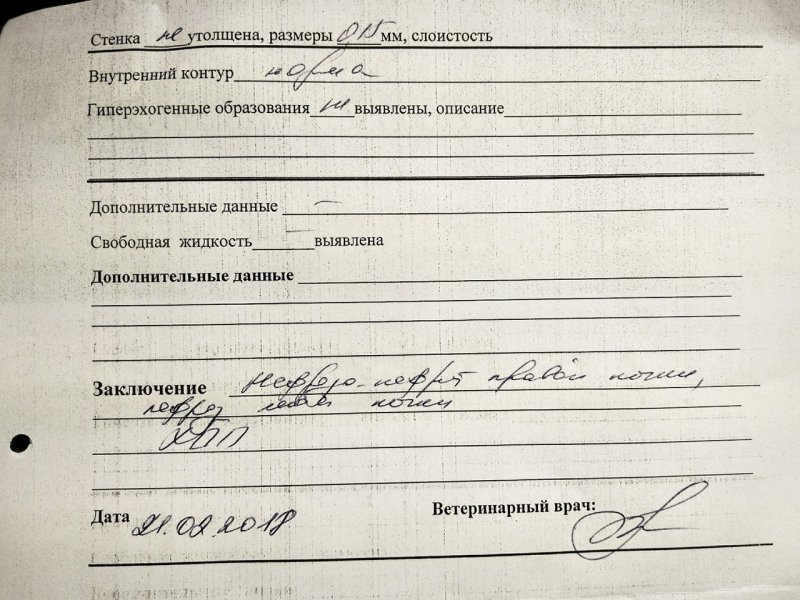 Стенка не утолщена, размеры 0,15 мм, слоистость
Внутренний контур норма
Гиперэхогенные образования не выявлены, описание
Дополнительные данные —
Свободная жидкость — выявлена
Дополнительные данные
Заключение Нефрозо-нефрит правой почки,
нефроз левой почки
ХПП
Дата 21.02.2018 Ветеринарный врач: